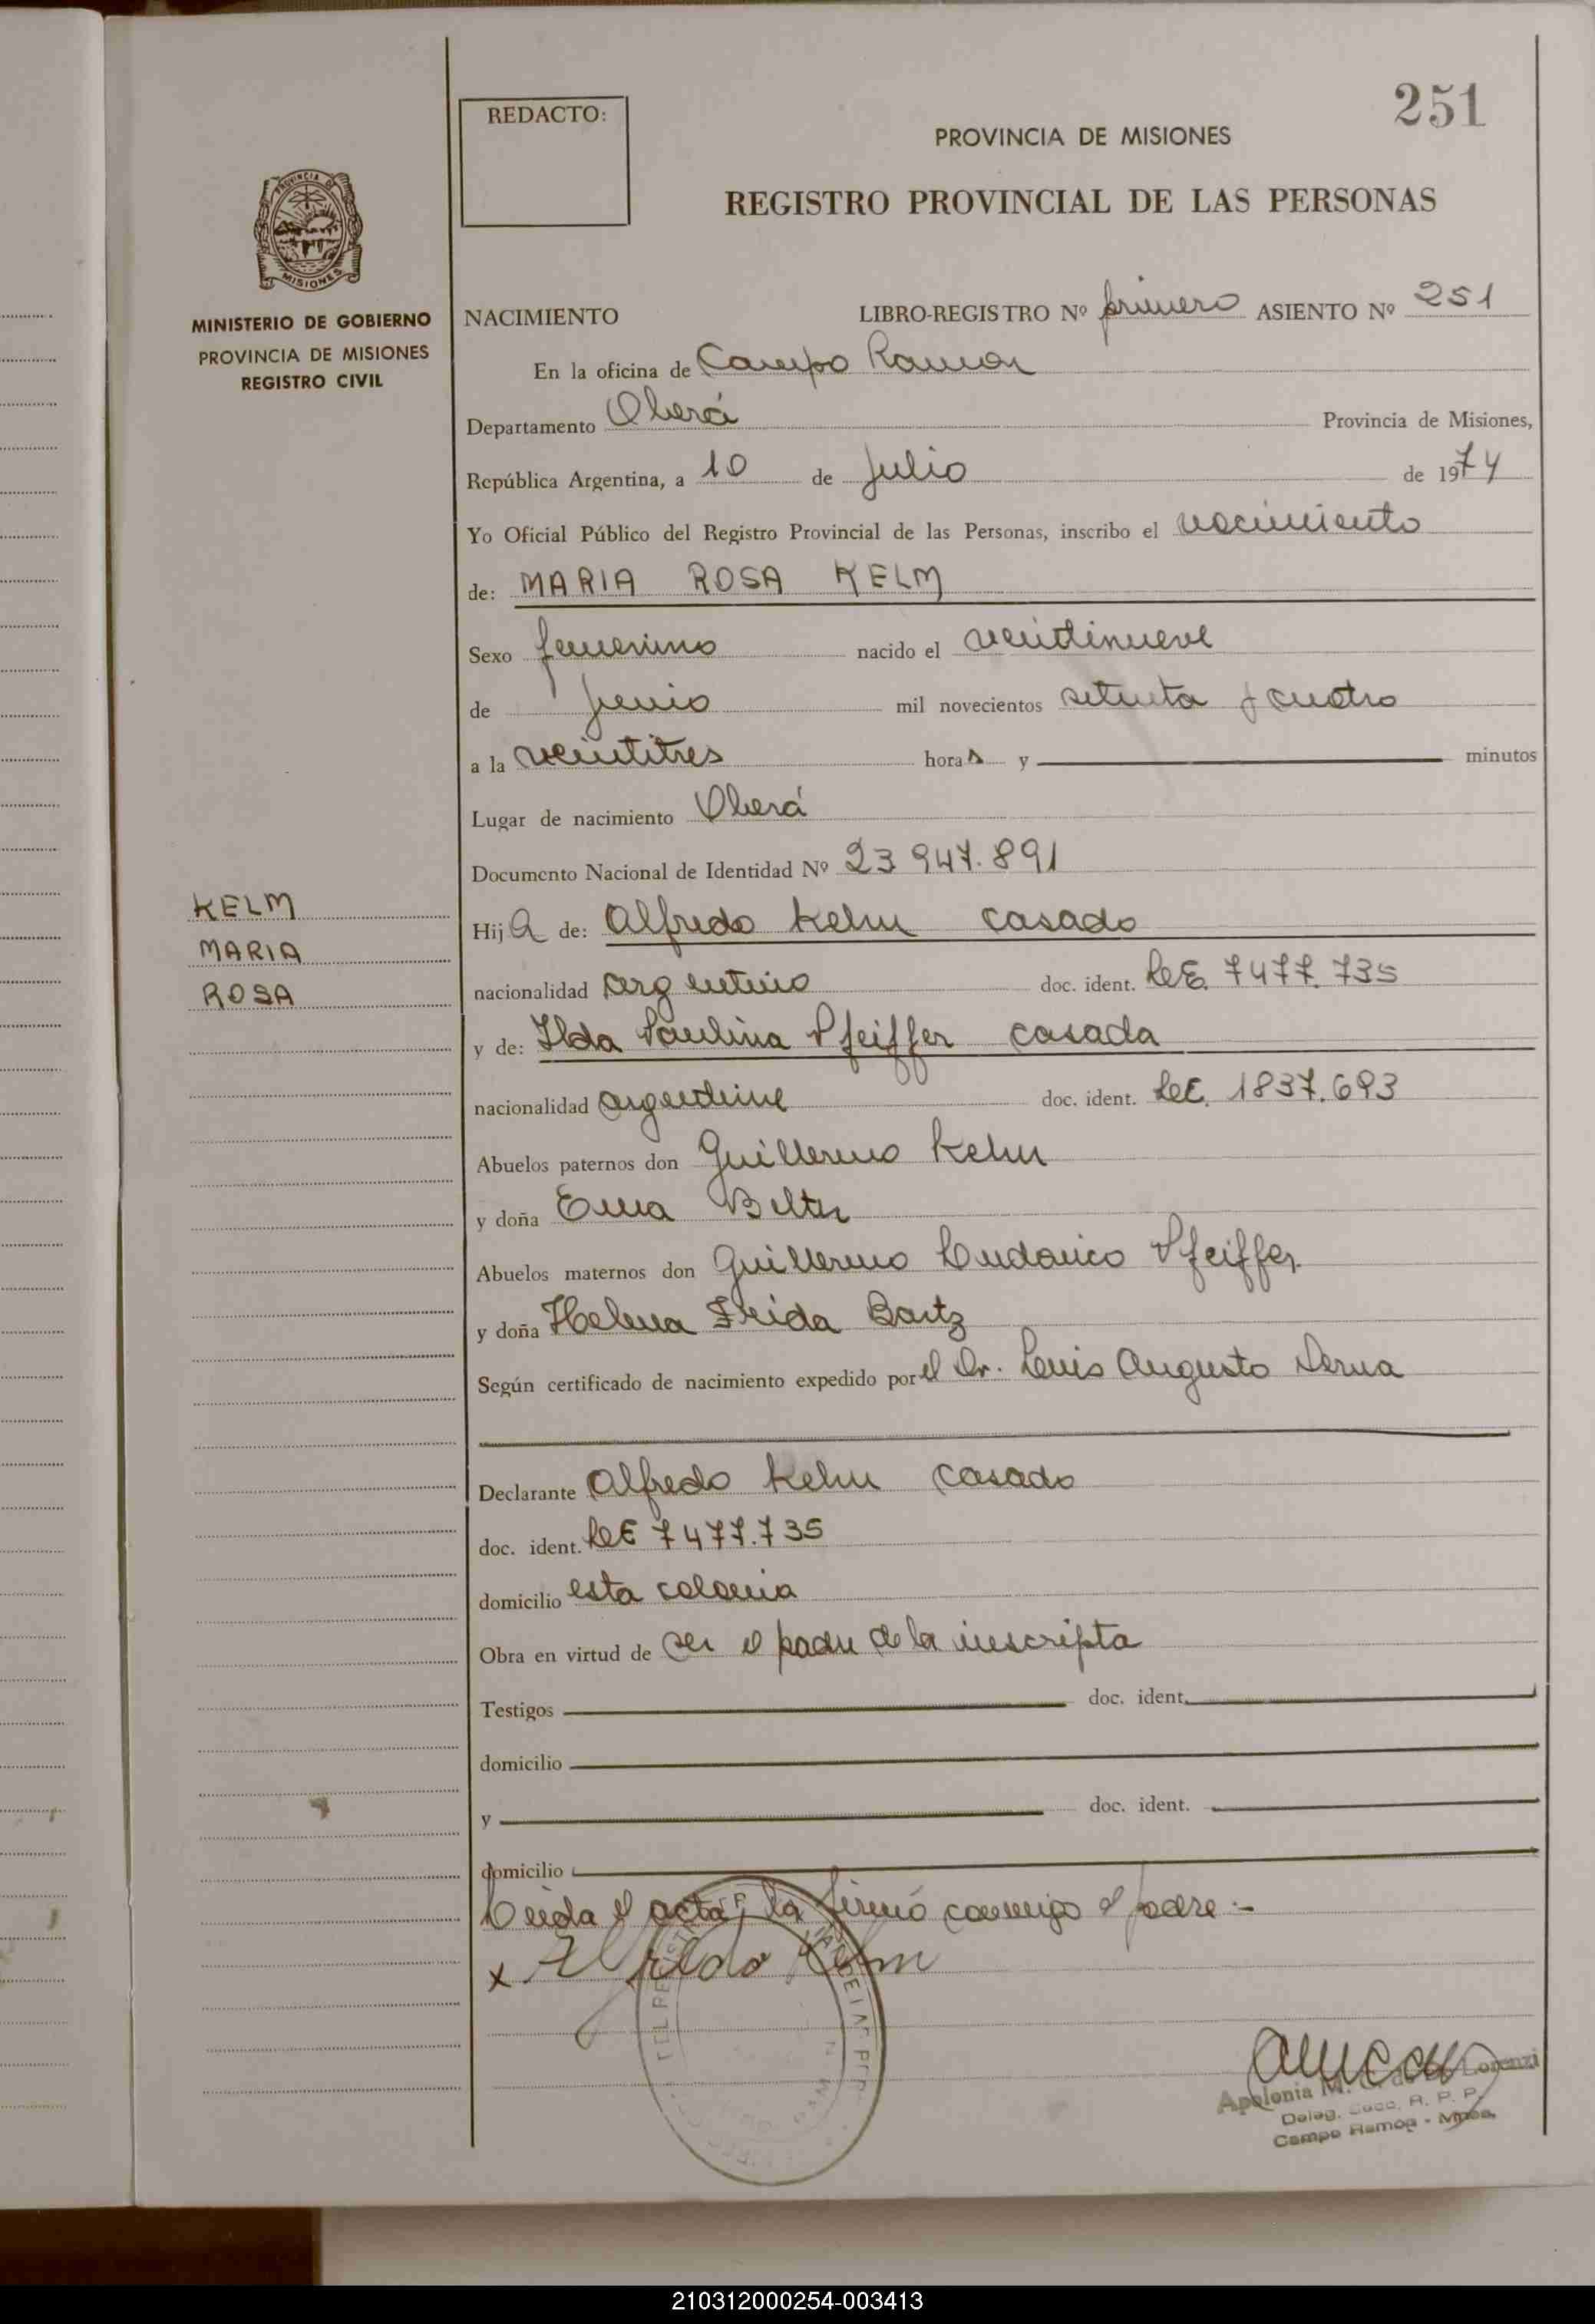 251
REDACTO:
PROVINCIA DE MISIONES
REGISTRO PROVINCIAL DE LAS PERSONAS
PROVINCIA DE
MISIONES
MINISTERIO DE GOBIERNO
PROVINCIA DE MISIONES
REGISTRO CIVIL
NACIMIENTO LIBRO-REGISTRO Nº primero ASIENTO Nº 251
En la oficina de Campo Ramon
Departamento Oberá Provincia de Misiones,
República Argentina, a 10 de Julio de 1974
Yo Oficial Público del Registro Provincial de las Personas, inscribo el nacimiento
de: MARIA ROSA KELM
Sexo femenino nacido el veintinueve
de junio mil novecientos setenta y cuatro
a la veintitres horas y minutos
Lugar de nacimiento Oberá
Documento Nacional de Identidad Nº 23 947.891
KELM
MARIA
ROSA
HijA de: Alfredo Kelm casado
nacionalidad argentino doc. ident. L.E. 7477.735
y de: Ilda Paulina Pfeiffer casada
nacionalidad argentina doc. ident. L.C. 1837.693
Abuelos paternos don Guillermo Kelm
y doña Ema
Abuelos maternos don Guillermo Ludovico Pfeiffer
y doña Helena Frida Bartz
Según certificado de nacimiento expedido por el Dr. Luis Augusto
Declarante Alfredo Kelm casado
doc. ident. L.E 7477.735
domicilio esta colonia
Obra en virtud de ser el padre de la inscripta
Testigos doc. ident.
domicilio
y doc. ident.
domicilio
Leida el acta, la firmó conmigo el padre.-
x Alfredo Kelm
Apolonia M. Lorenzi
Deleg. R. P. P.
Campo Ramón - Mnes.
210312000254-003413